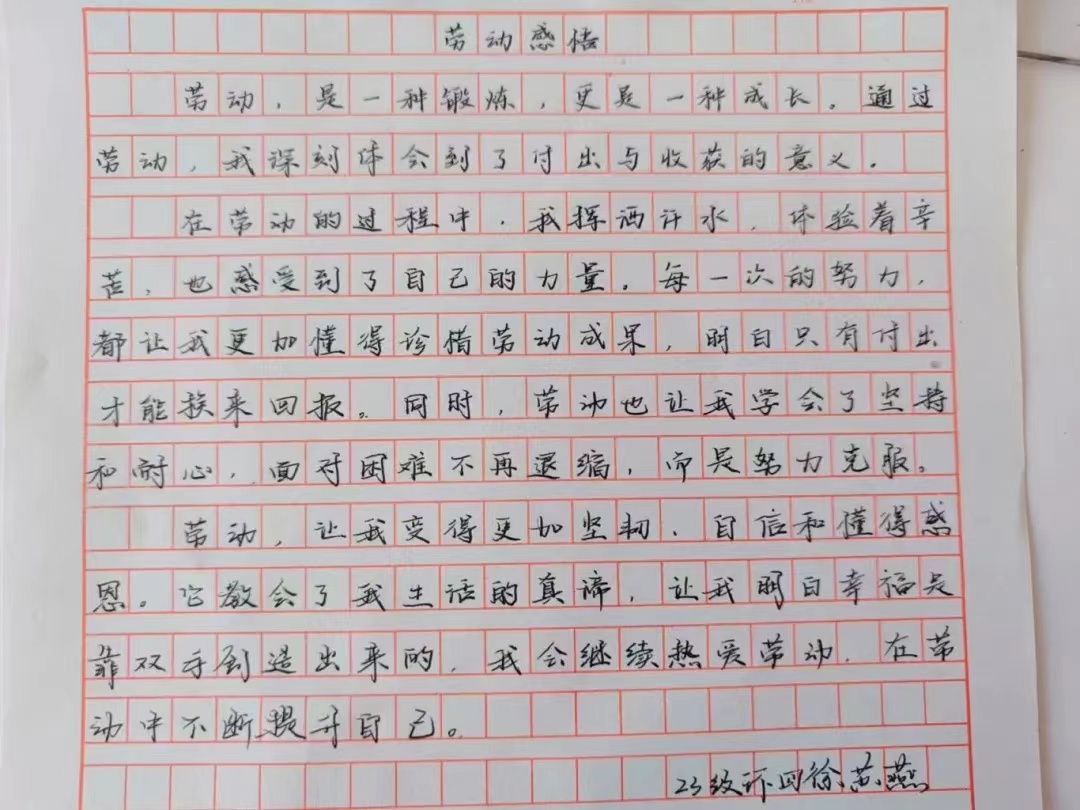 劳动感悟
劳动，是一种锻炼，更是一种成长。通过
劳动，我深刻体会到了付出与收获的意义。
在劳动的过程中，我挥洒汗水，体验着辛
苦，也感受到了自己的力量。每一次的努力，
都让我更加懂得珍惜劳动成果，明白只有付出
才能换来回报。同时，劳动也让我学会了坚持
和耐心，面对困难不再退缩，而是努力克服。
劳动，让我变得更加坚韧、自信和懂得感
恩。它教会了我生活的真谛，让我明白幸福是
靠双手创造出来的，我会继续热爱劳动，在劳
动中不断提升自己。
23级环四徐苏燕